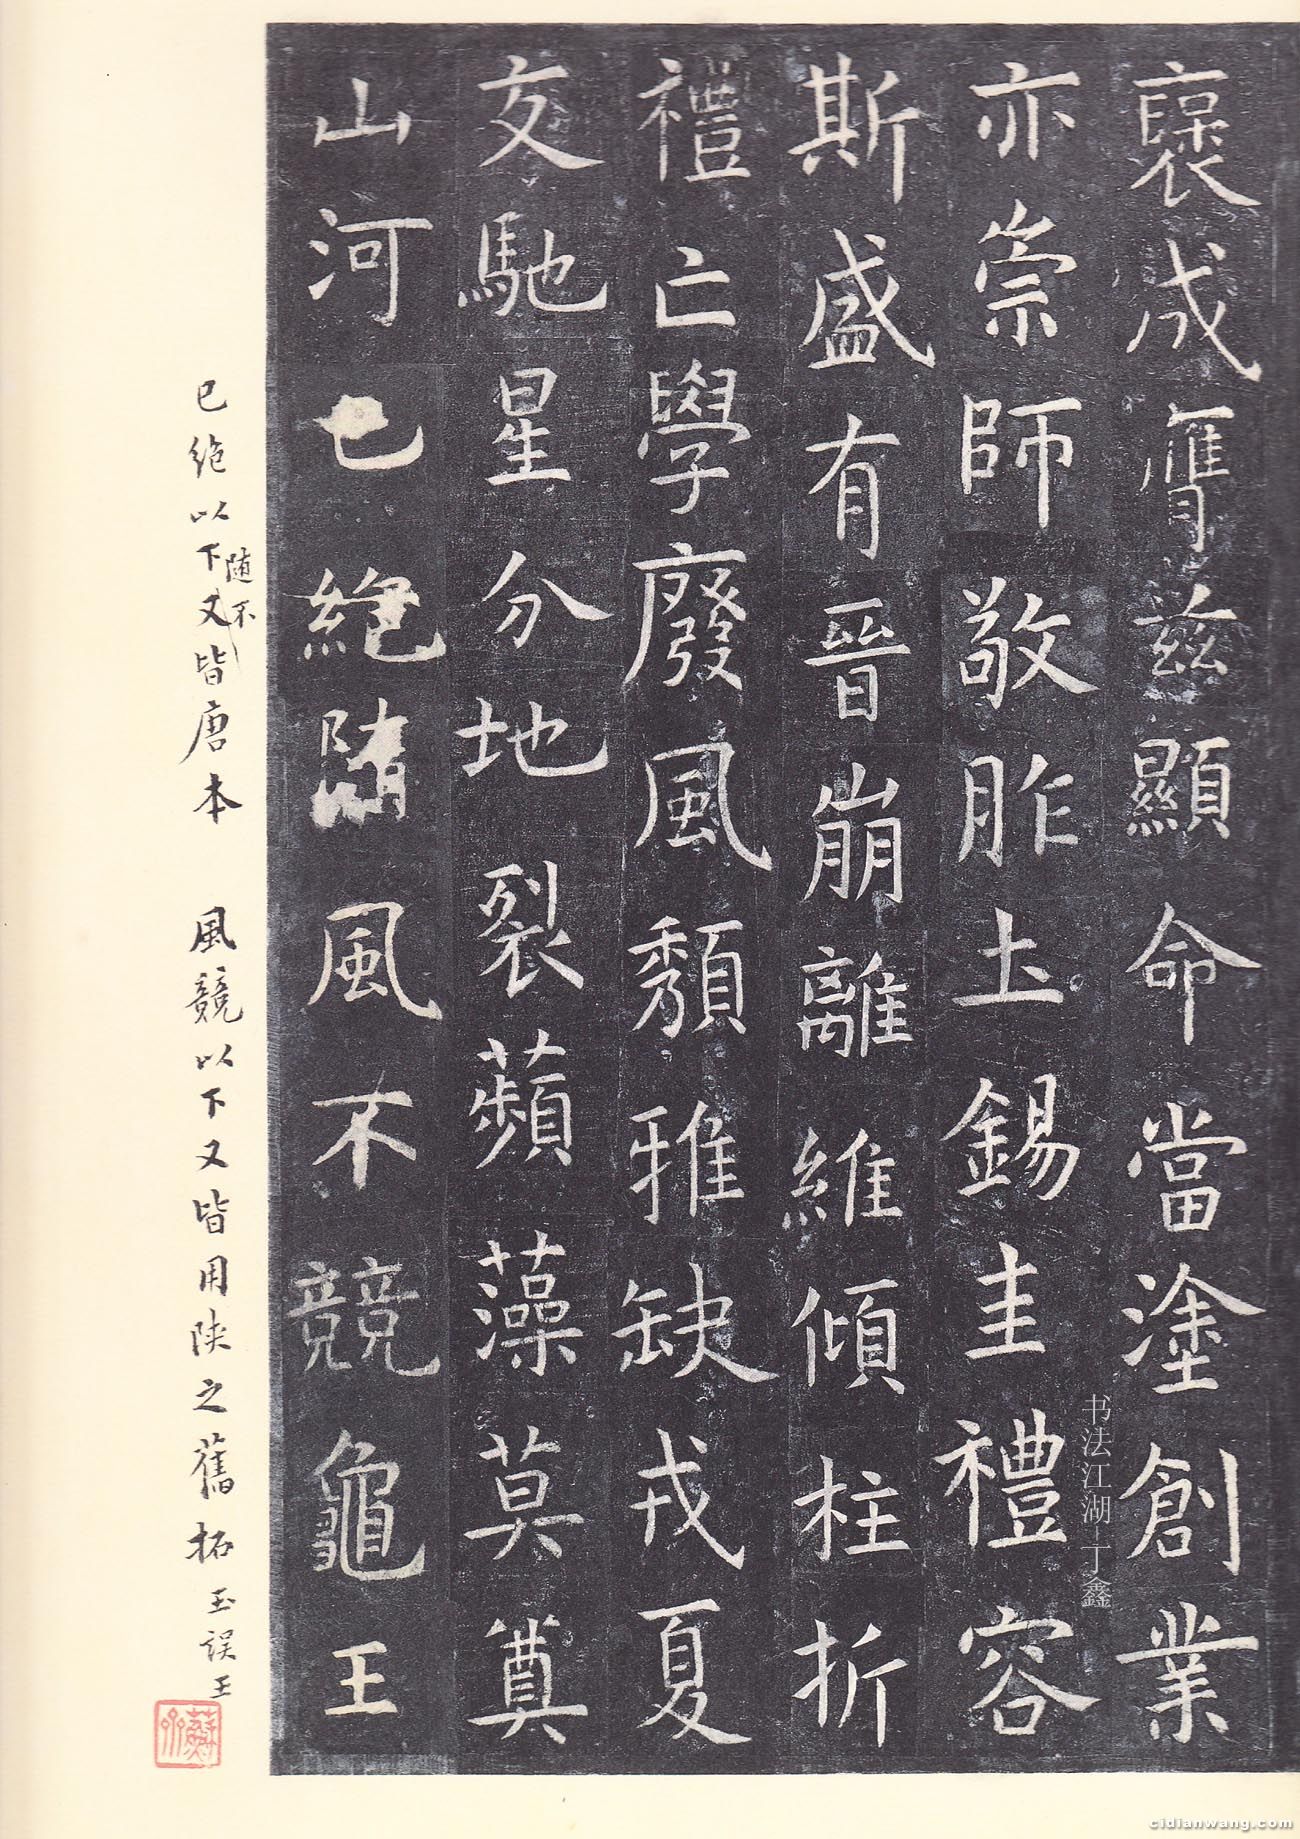 襃成膺兹顯命當塗創業
亦崇師敬胙土錫圭禮容
斯盛有晉崩離維傾柱折
禮亡學廢風頽雅缺戎夏
交馳星分地裂蘋藻莫奠
山河已絕隨風不競龜王
已绝以下又皆唐本 風競以下又皆用陕之舊拓 玉误王
随不
书法江湖-丁鑫
cidianwang.com